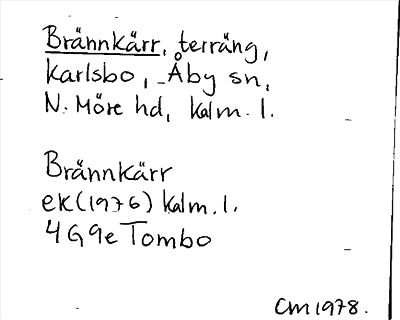 Brännkärr, terräng,
Karlsbo, Åby sn,
N. Möre hd, Kalm. l.
Brännkärr
ek (1976) Kalm. l.
4 G 9e Tombo
CM 1978.